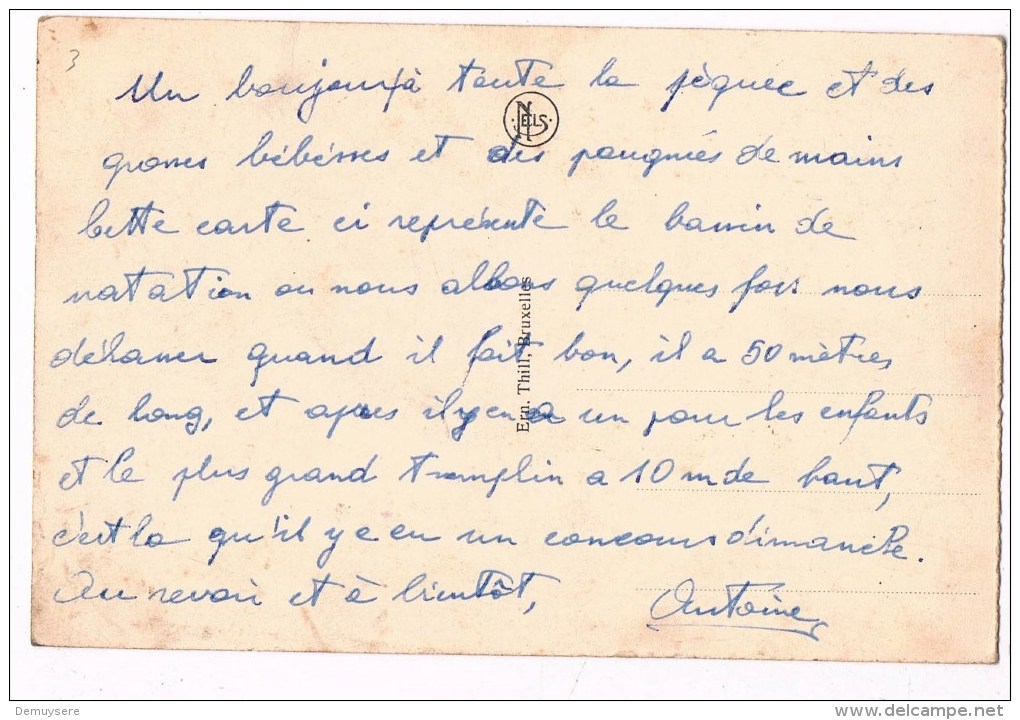 3
Un bonjour à toute la péquée et des
NELS
grosses bébésses et des pougniés de mains
Cette carte ci représente le bassin de
natation ou nous allons quelques fois nous
délasser quand il fait bon, il a 50 mètres
de long, et apres il y en a un pour les enfants
et le plus grand tremplin a 10 m de haut,
c'est la qu'il y e eu un concours dimanche.
Au revoir et à bientôt, Antoine
Ern. Thill, Bruxelles
Demuysere
www.delcampe.net